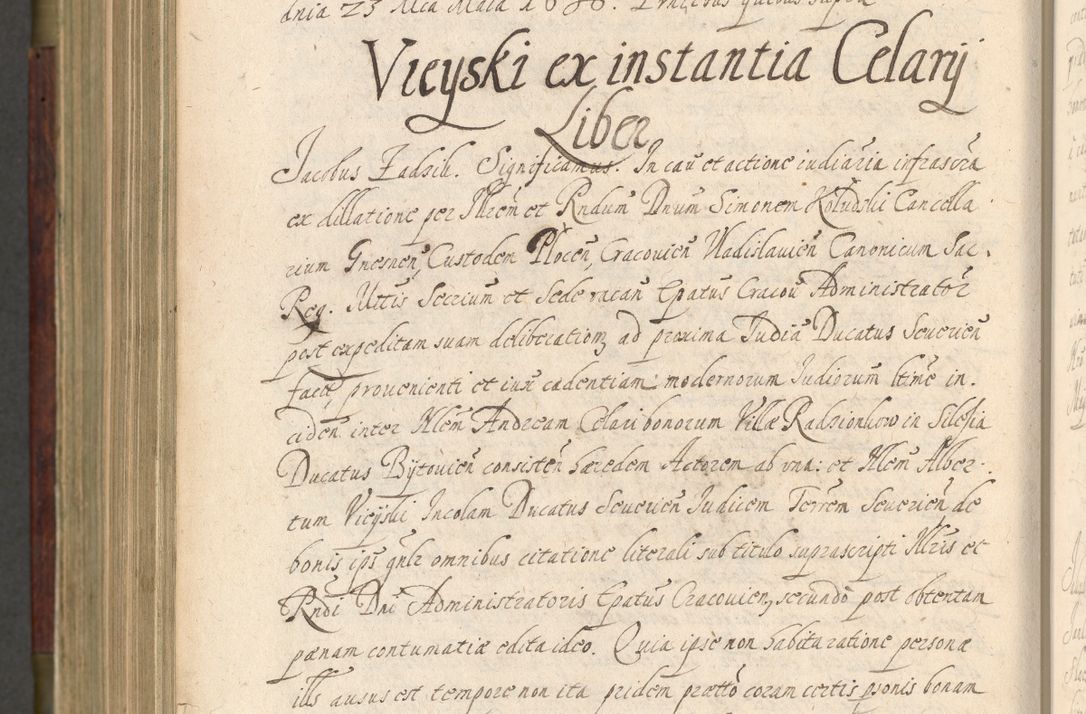 dnia 23 Mca Maia 1636. Pntibus quibus supra
Vieyski ex instantia Celarÿ
Liber
Jacobus Zadzik. Significamus. In cau et actione iudiaria infrascra
ex dillatione per Illrem et Rndum Dnum Simonem Koludski Cancella
rium Gnesnen, Custodem Plocen, Cracouien Vladislauien Canonicum Sac.
Reg. Mttis Secrium et Sede vacan Epatus Cracou Administrator
post expeditam suam deliberationem ad proxima Iudia Ducatus Seuerien
facti, prouenienti et iure cadentiam modernorum Iudiorum ltime in.
ciden inter Nlem Andream Celari bonorum Villæ Radzionkow in Silesia
Ducatus Bÿtouien consisten hæredem Actorem ab vna: et Nlem Alber.
tum Vieyski Incolam Ducatus Seuerien Iudicem Terrem Seuerien de
bonis ips gnlr omnibus citatione literali sub titulo suprascripti Illris et
Rndi Dni Administratoris Epatus Cracouien, secundo post obtentam
pænam contumatiæ edita ideo. Quia ipse non habita ratione personæ
ills ausus est tempore non ita pridem prætto coram certis psonis bonam